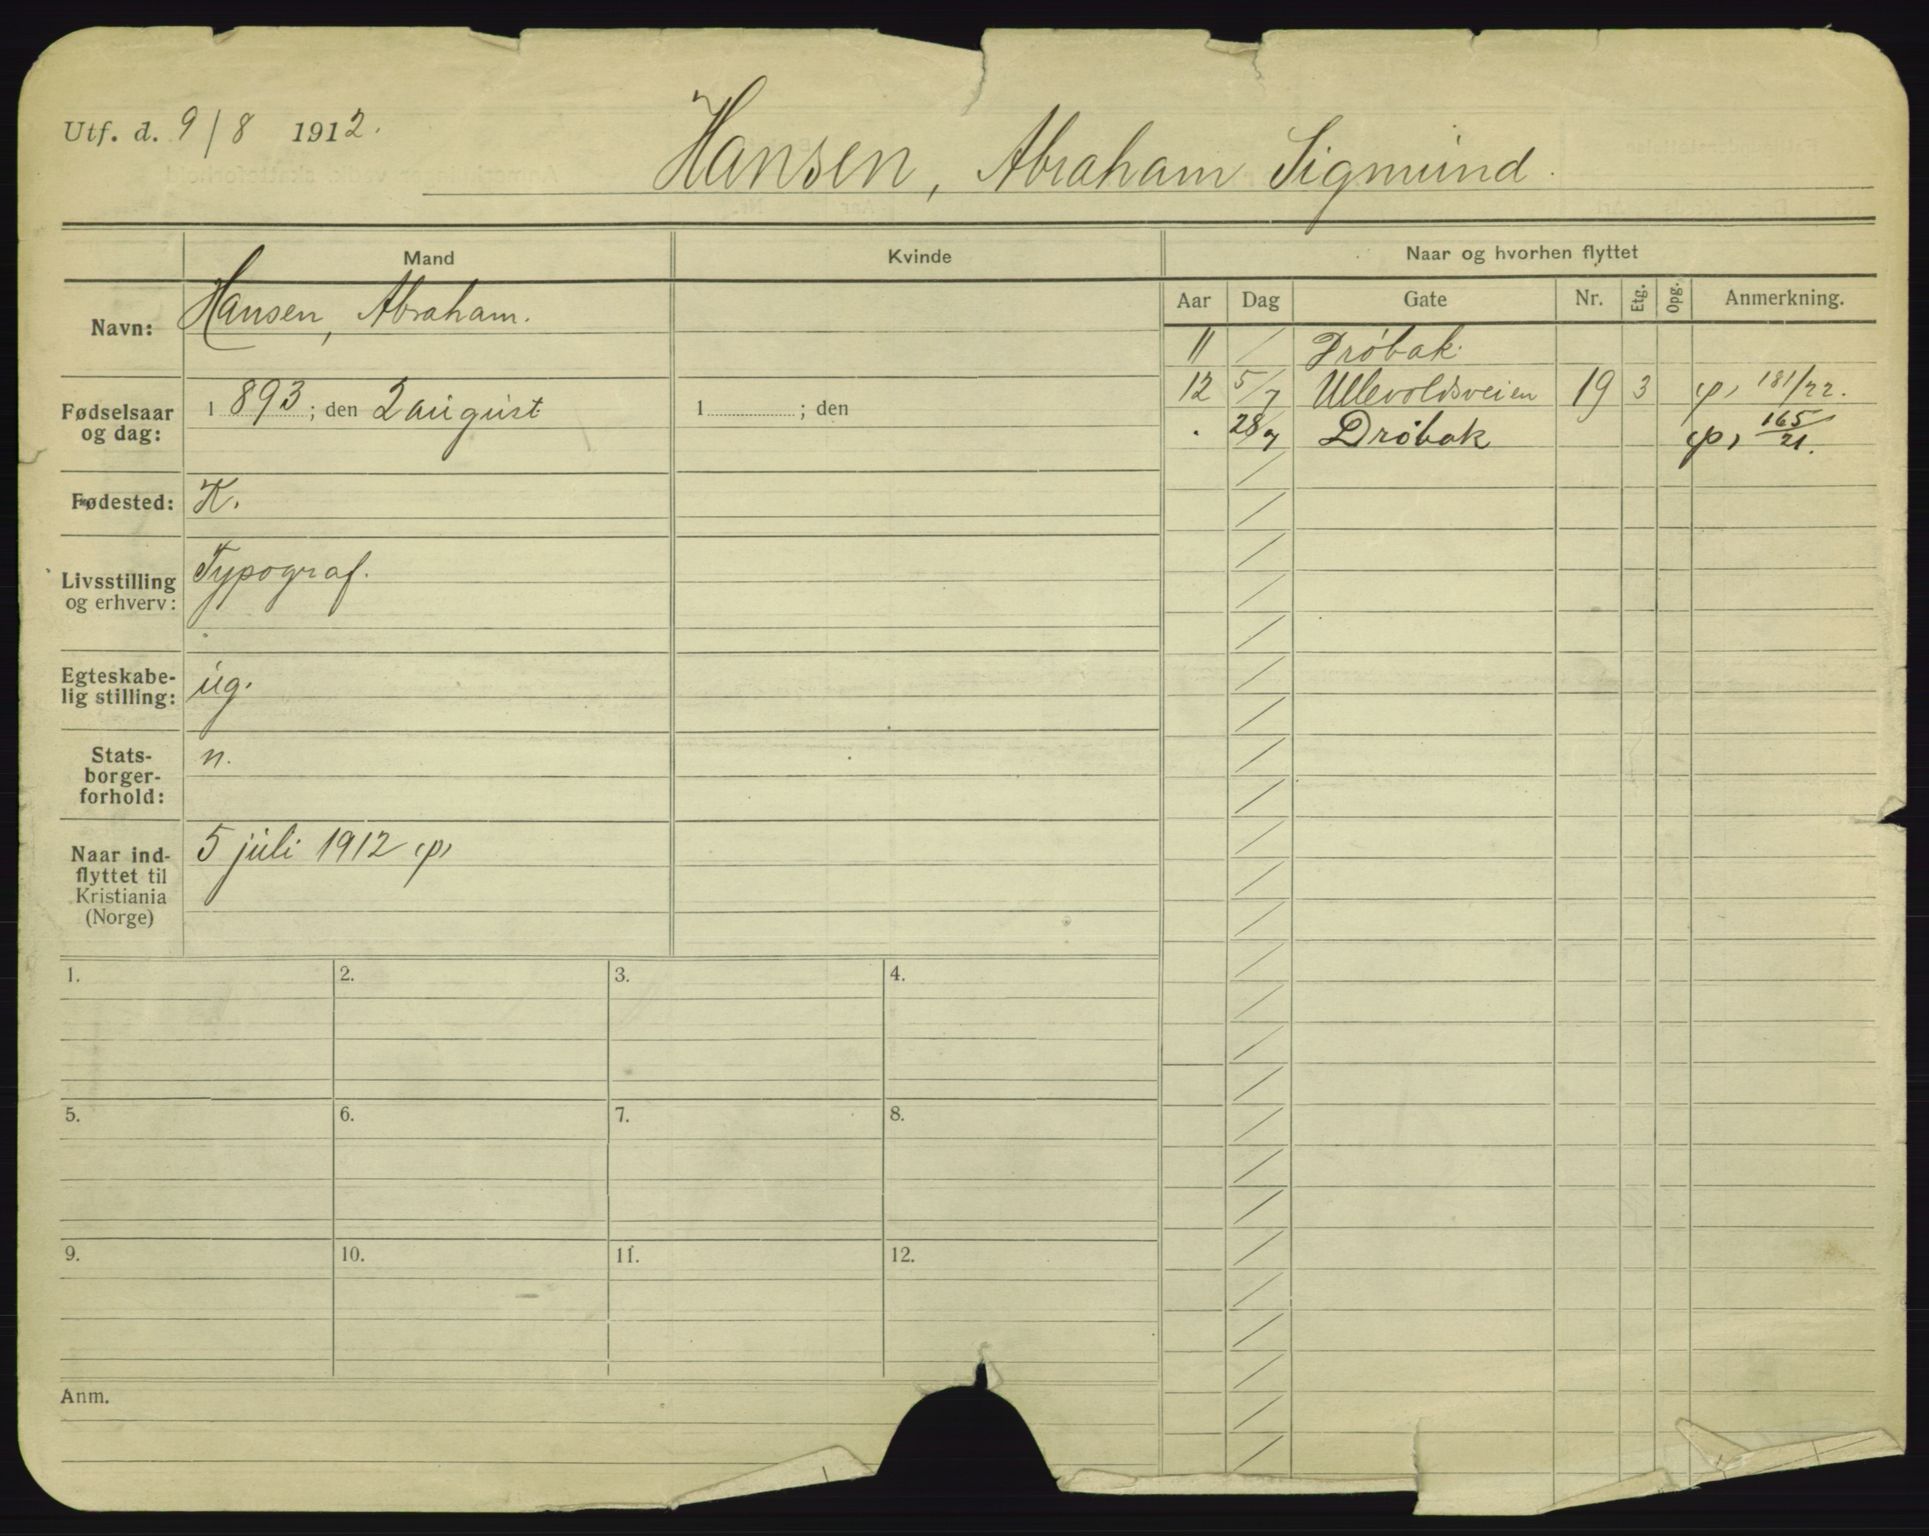 Utf. d. 9/8 1912.
Hansen, Abraham Sigmund.
Mand Kvinde Naar og hvorhen flyttet
Aar Dag Gate Nr. Etg. Opg. Anmerkning.
Navn: Hansen, Abraham.
11 / Drøbak.
12 5/7 Ullevoldsveien 19 3 (p) 181/22.
. 28/7 Drøbak (p) 165/21.
Fødselsaar og dag: 1893; den 2 august 1 ; den
Fødested: K.
Livsstilling og erhverv: Typograf.
Egteskabe-
lig stilling: ug.
Stats-
borger-
forhold: n.
Naar ind-
flyttet til
Kristiania
(Norge) 5 juli 1912 (p)
1. 2. 3. 4.
5. 6. 7. 8.
9. 10. 11. 12.
Anm.